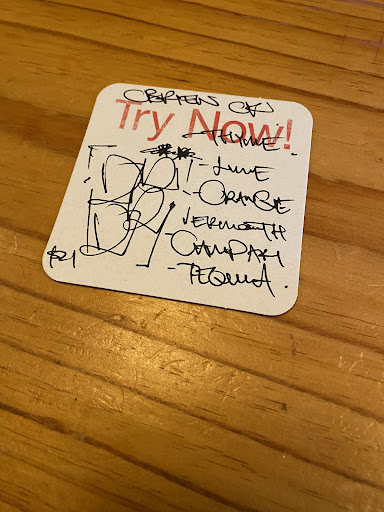 O'BRIEN
Try Now!
- THYME -
- LIME
- ORANGE
VERMOUTH
- CAMPARI
- TEQUILA.
$21